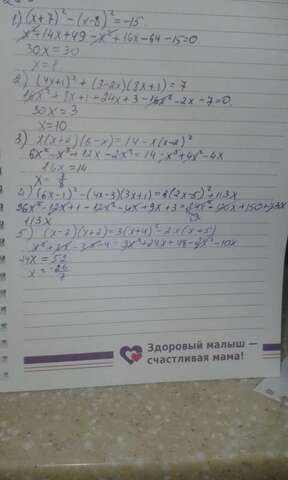 1) (x+7)² - (x-8)² = -15
x²+14x+49 - x²+16x-64-15=0
30x = 30
x = 1
2) (4x+1)² + (3-2x)(8x+1) = 7
16x² + 8x+1+24x+3-16x²-2x-7=0
30x = 3
x=10
3) x(x+2)(6-x) = 14 - x(x-2)²
6x²-x³+12x-2x² = 14 - x³+4x²-4x
16x = 14
x = 7/8
4) (6x-1)² - (4x-3)(3x+1) = 6(2x-5)² + 113x
36x²-12x+1-12x²-4x+9x+3 = 24x²-120x+150+113x
113x
5) (x-2)(x+2) = 3(x+4)² - 2x(x+5)
-14x = 52
x = -26/7
Здоровый малыш —
счастливая мама!